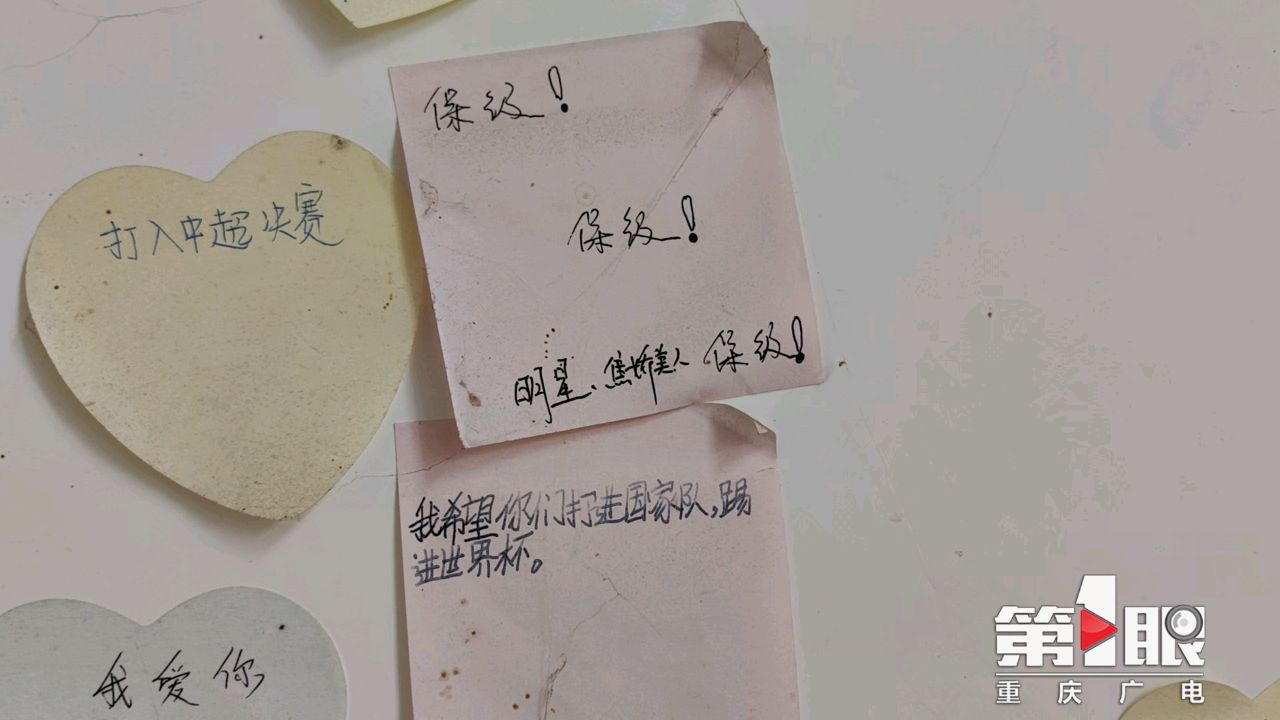 打入中超决赛
保级！
保级！
明星、焦娇美人 保级！
我希望你们打进国家队，踢
进世界杯。
我爱你
第1眼
重庆广电